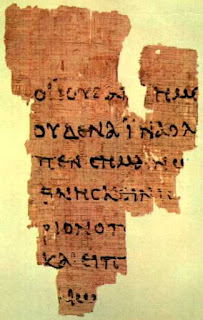 ΟΙΙΟΥΔΑΙ ΗΜΕ
ΟΥΔΕΝΑΙΝΑΟΛ
ΠΕΝϹΗΜΑΙΝΩ
ΘΝΗϹΚΕΙΝΙ
ΡΙΟΝΟΠ
ΚΑΙΕΙΠ